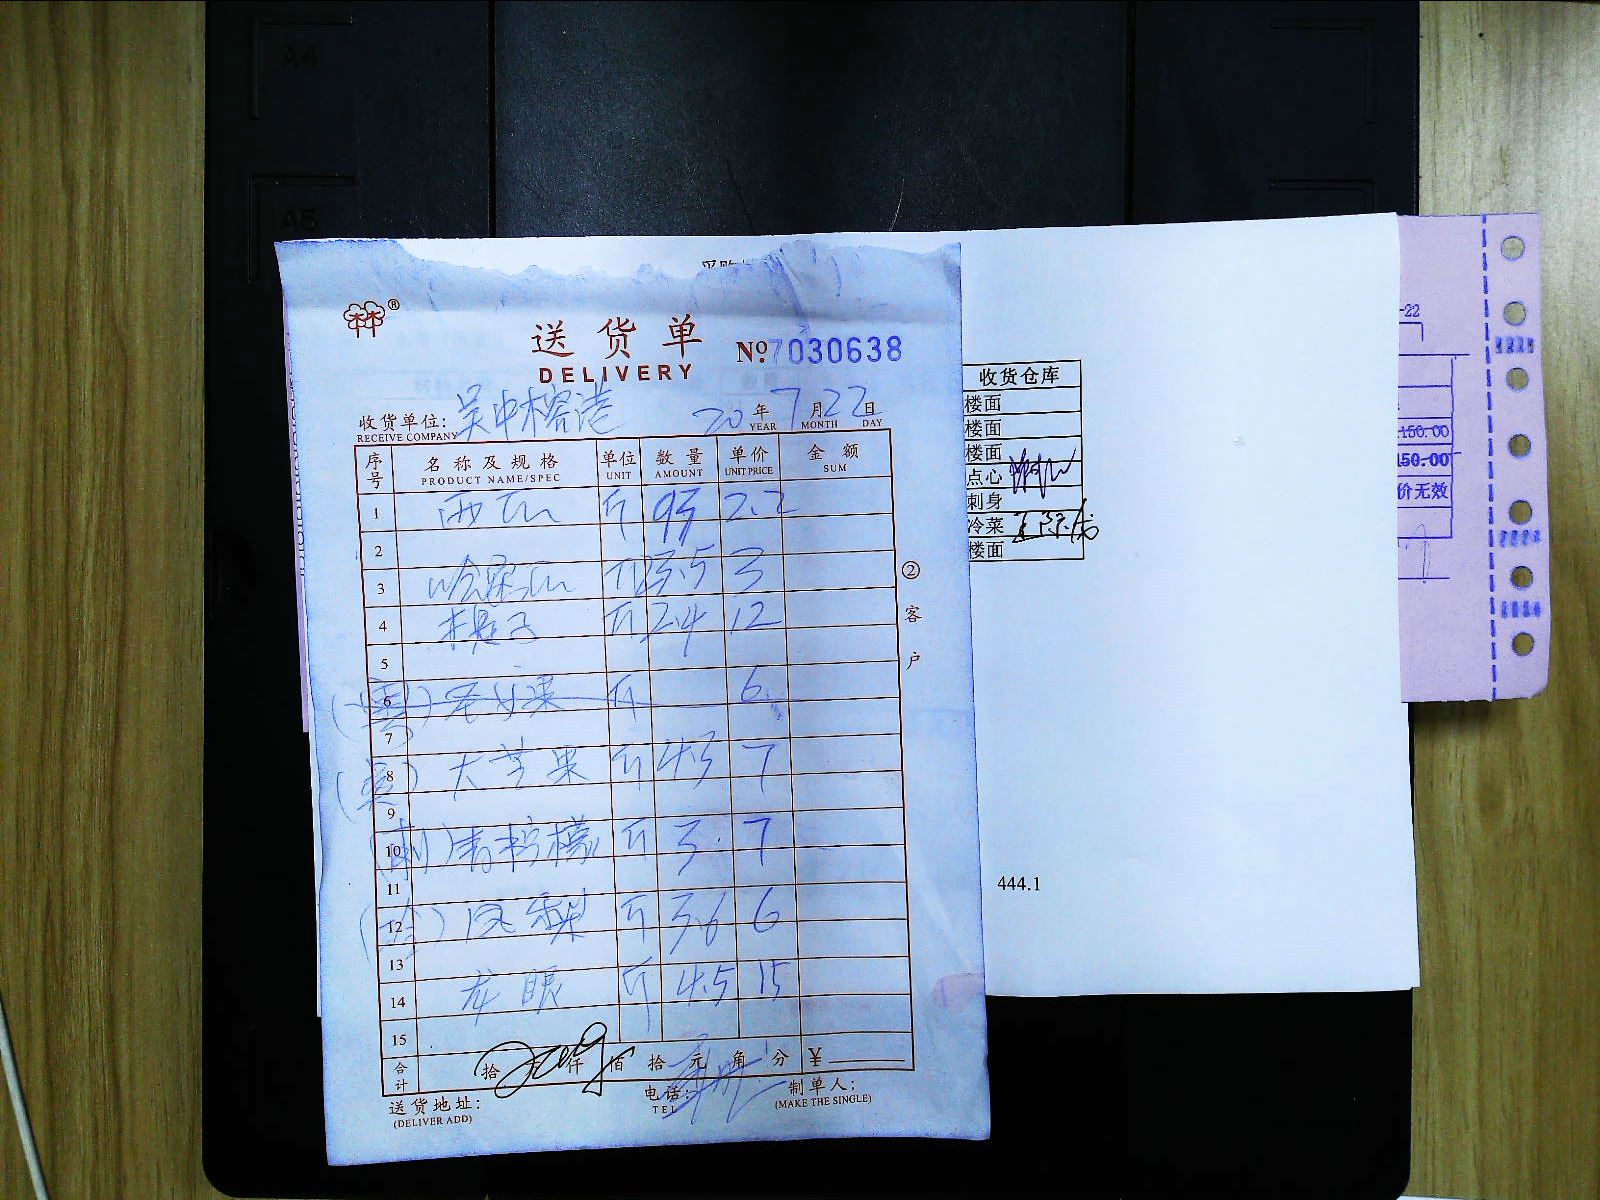 A4
A5
送货单
DELIVERY
№ 7030638
收货单位: 吴中榕港
RECEIVE COMPANY
20 年 7 月 22 日
YEAR MONTH DAY
序号 名称及规格 单位 数量 单价 金额
PRODUCT NAME/SPEC UNIT AMOUNT UNIT PRICE SUM
1 西瓜 斤 95 2.2
2
3 哈密瓜 斤 23.5 3
4 提子 斤 2.4 12
5
6 圣女果 斤 6
7
8 大芒果 斤 4.5 7
9
10 (刺) 青柠檬 斤 3. 7
11
12 (冷) 凤梨 斤 3.6 6
13
14 龙眼 斤 4.5 15
15
合计 拾 仟 佰 拾 元 角 分 ¥
送货地址:
(DELIVER ADD)
电话:
TEL
制单人:
(MAKE THE SINGLE)
② 客户
收货仓库
楼面
楼面
楼面
点心
刺身
冷菜
楼面
444.1
-22
150.00
150.00
价无效